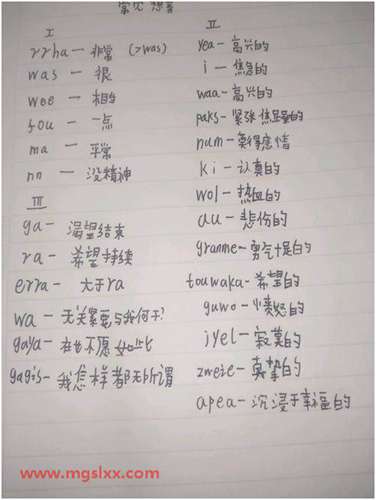 常见
I
rrha — 非常 (>was)
was — 很
wee — 相当
fou — 一点
ma — 平常
nn — 没精神
III
ga — 渴望结束
ra — 希望持续
erra — 大于ra
wa — 无关紧要与我何干?
gaya — 不愿如此
gagis — 我怎样都无所谓
II
yea — 高兴的
i — 焦急的
waa — 高兴的
paks — 紧张 的
num — 莫得感情
ki — 认真的
wol — 热血的
au — 悲伤的
granme — 勇气十足的
touwaka — 希望的
guwo — 愤怒的
iyel — 寂寞的
zweie — 真挚的
apea — 沉浸于幸福的
www.mgslxx.com